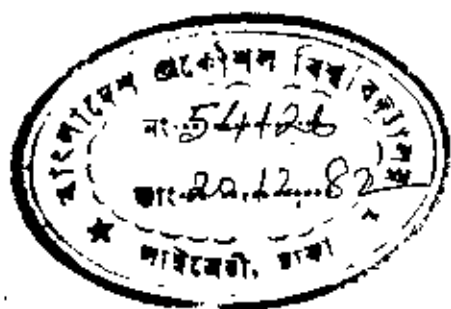 বাংলাদেশ প্রকৌশল বিশ্ববিদ্যালয়
নং...54126
তাং...20.12...82
★ লাইব্রেরী, ঢাকা